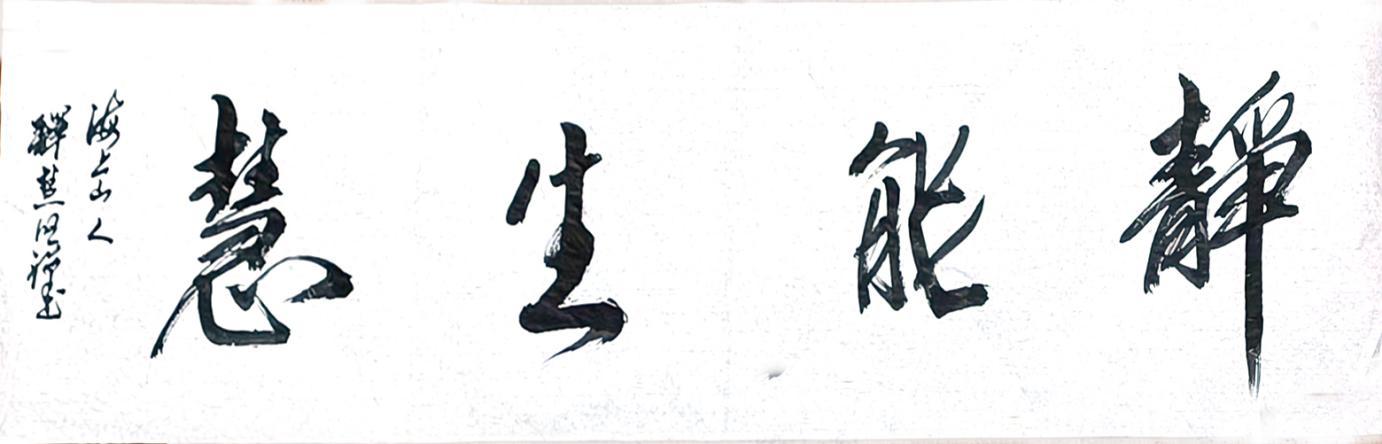 靜能生慧
海上山人
釋慧